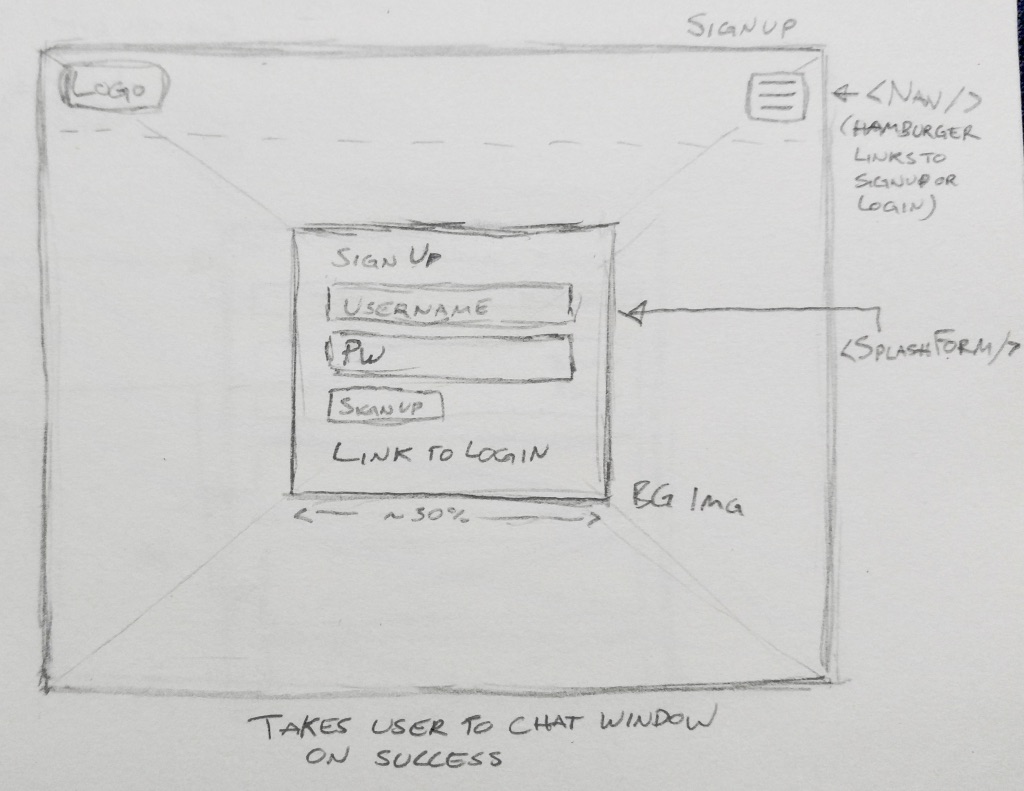 SIGNUP
LOGO
<NAV/>
(HAMBURGER
LINKS TO
SIGNUP OR
LOGIN)
SIGN UP
USERNAME
PW
SIGNUP
LINK TO LOGIN
<SPLASHFORM/>
BG IMG
~30%
TAKES USER TO CHAT WINDOW
ON SUCCESS